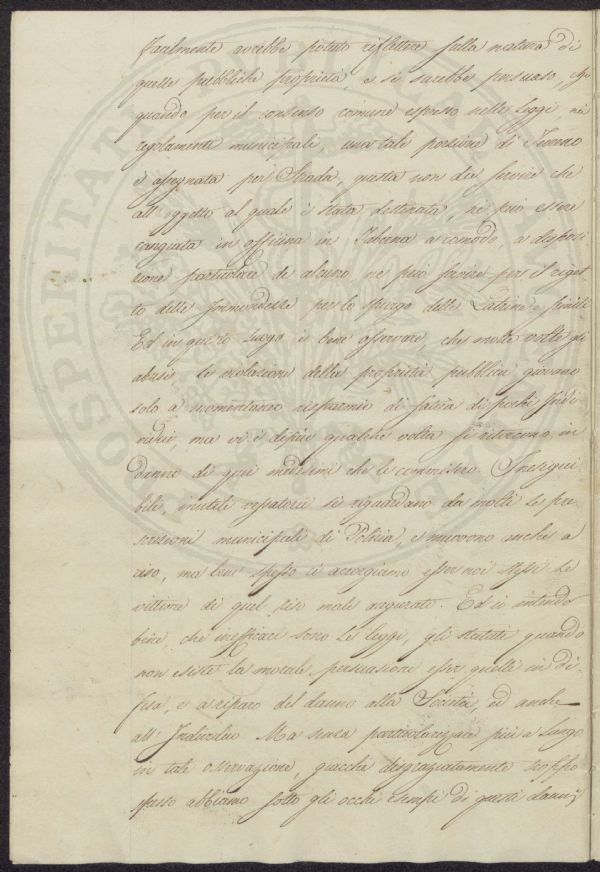 Facilmente avrebbe potuto riflettere sulla natura di
quelle pubbliche proprietà, e si sarebbe persuaso, che
quando per il consenso comune espresso nelle Leggi, nei
regolamenti municipali, una tale porzione di Terreno
è assegnata per Strada, questa non dee servire che
all' oggetto al quale è stata destinata, nè può essere
cangiata in officina in Taberna a comodo, a disposi
zione particolare di alcuno nè può servire per il riget
to delle Immondezze per lo spurgo delle Latrine, e simili
Ed in questo luogo è bene osservare, che molte volte gli
abusi, le violazioni delle proprietà pubbliche giovano
solo a momentaneo risparmio di fatica di pochi Indi
vidui, ma vi è di più qualche volta si ritorcono in
danno di quei medesimi che le commisero. Ineseguì
bili, inutili vessatorie si riguardano da molti le pre
scrizioni municipali di Polizia, e muovono anche a
riso, ma bene spesso ci accorgiamo esser noi stessi le
vittime di quel riso male augurato. Ed io intendo
bene, che inefficaci sono le leggi, gli statuti quando
non esiste la morale persuasione esser quelli in di-
fesa, e a riparo del danno alla Società, ed anche
all' Individuo Ma senza particolarizzare più a lungo
in tale osservazione, giacchè disgraziatamente troppo
spesso abbiamo sotto gli occhi esempi di questi danni
PROSPERITATI PUBLICAE